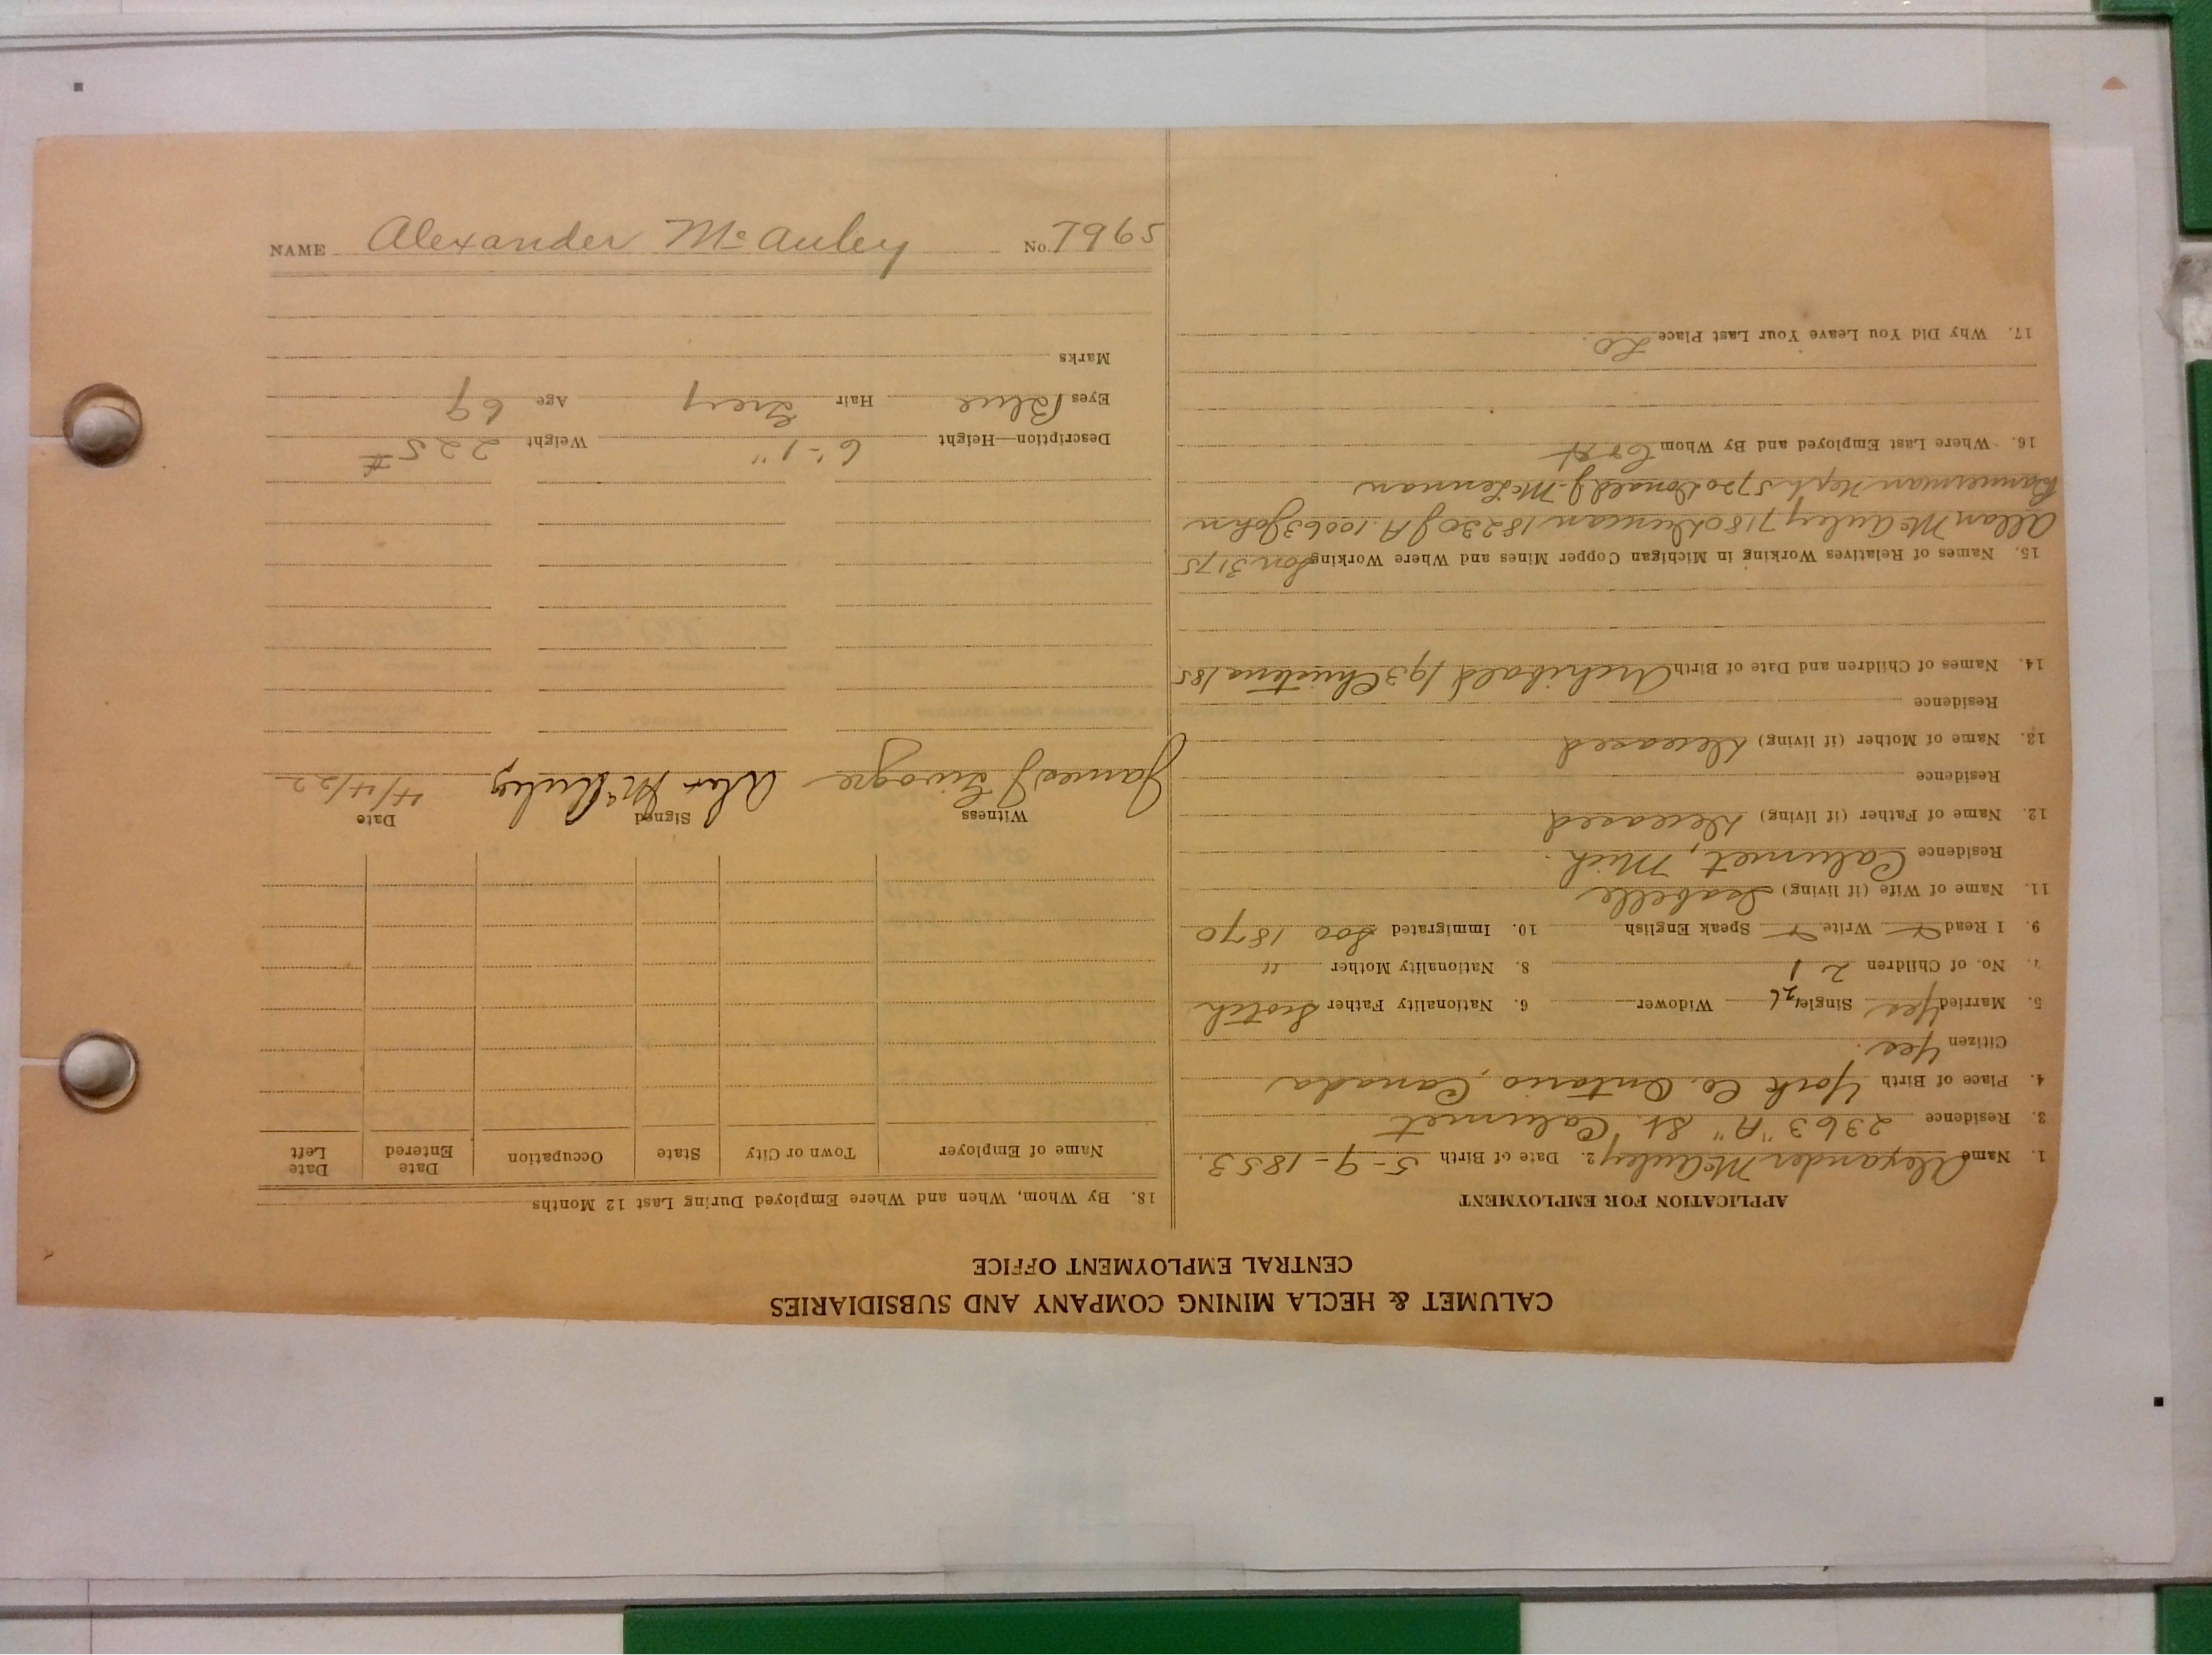 CALUMET & HECLA MINING COMPANY AND SUBSIDIARIES
CENTRAL EMPLOYMENT OFFICE
APPLICATION FOR EMPLOYMENT
1. Name Alexander McAuley 2. Date of Birth 5-9-1853.
3. Residence 2363 "A" St. Calumet
4. Place of Birth York Co. Ontario, Canada
Citizen Yes.
5. Married Yes Single Widower 6. Nationality Father Scotch
7. No. of Children 2 8. Nationality Mother "
9. I Read Write Speak English 10. Immigrated Soo 1870
11. Name of Wife (if living) Isabelle
Residence Calumet, Mich.
12. Name of Father (if living) Deceased
Residence
13. Name of Mother (if living) Deceased
Residence
14. Names of Children and Date of Birth Archibald 193 Christena 185
15. Names of Relatives Working in Michigan Copper Mines and Where Working Son 3175
Allan McAuley 7180 Duncan 18230 J A 10063 John
Bannerman Neph 5720 Donald J. McLennan
16. Where Last Employed and By Whom C & H
17. Why Did You Leave Your Last Place LO
18. By Whom, When and Where Employed During Last 12 Months
Name of Employer Town or City State Occupation Date Entered Date Left
Witness Signed Date
James J Alex McAuley 4/4/22
Description—Height 6'-1" Weight 225 #
Eyes Blue Hair Grey Age 69
Marks
NAME Alexander McAuley No. 7965